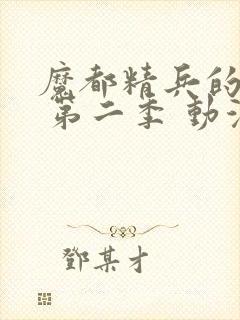 魔都精兵的
第二季 動
鄧某才